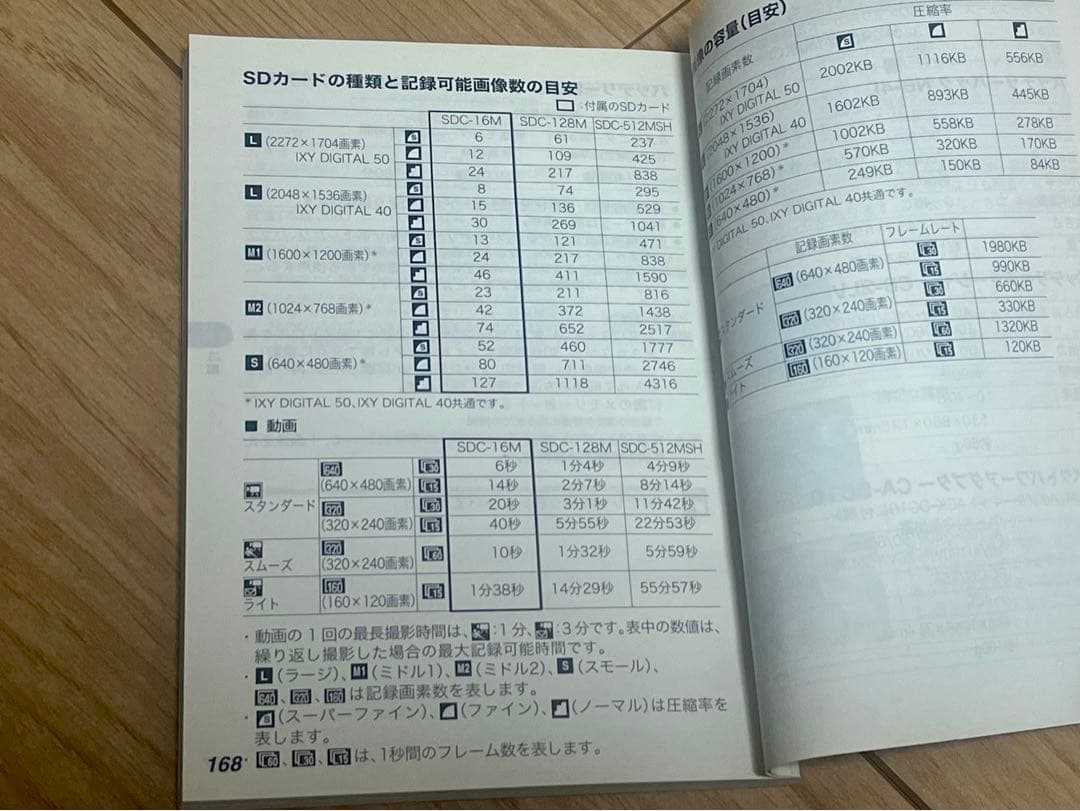 SDカードの種類と記録可能画像数の目安
付属のSDカード
SDC-16M SDC-128M SDC-512MSH
L (2272×1704画素) IXY DIGITAL 50 S 6 61 237
12 109 425
24 217 838
L (2048×1536画素) IXY DIGITAL 40 S 8 74 295
15 136 529
30 269 1041
M1 (1600×1200画素)* S 13 121 471
24 217 838
46 411 1590
M2 (1024×768画素)* S 23 211 816
42 372 1438
74 652 2517
S (640×480画素)* S 52 460 1777
80 711 2746
127 1118 4316
* IXY DIGITAL 50、IXY DIGITAL 40共通です。
■ 動画
SDC-16M SDC-128M SDC-512MSH
スタンダード 640 (640×480画素) 30 6秒 1分4秒 4分9秒
15 14秒 2分7秒 8分14秒
320 (320×240画素) 30 20秒 3分1秒 11分42秒
15 40秒 5分55秒 22分53秒
スムーズ 320 (320×240画素) 60 10秒 1分32秒 5分59秒
ライト 160 (160×120画素) 15 1分38秒 14分29秒 55分57秒
・動画の1回の最長撮影時間は、:1分、:3分です。表中の数値は、
繰り返し撮影した場合の最大記録可能時間です。
・L(ラージ)、M1(ミドル1)、M2(ミドル2)、S(スモール)、
640、320、160は記録画素数を表します。
・S(スーパーファイン)、(ファイン)、(ノーマル)は圧縮率を
表します。
・60、30、15は、1秒間のフレーム数を表します。
168
像の容量(目安)
圧縮率
記録画素数 S
(2272×1704) IXY DIGITAL 50 2002KB 1116KB 556KB
(2048×1536) IXY DIGITAL 40 1602KB 893KB 445KB
(1600×1200)* 1002KB 558KB 278KB
(1024×768)* 570KB 320KB 170KB
(640×480)* 249KB 150KB 84KB
DIGITAL 50、IXY DIGITAL 40共通です。
記録画素数 フレームレート
スタンダード 640 (640×480画素) 30 1980KB
15 990KB
320 (320×240画素) 30 660KB
15 330KB
スムーズ 320 (320×240画素) 60 1320KB
ライト 160 (160×120画素) 15 120KB